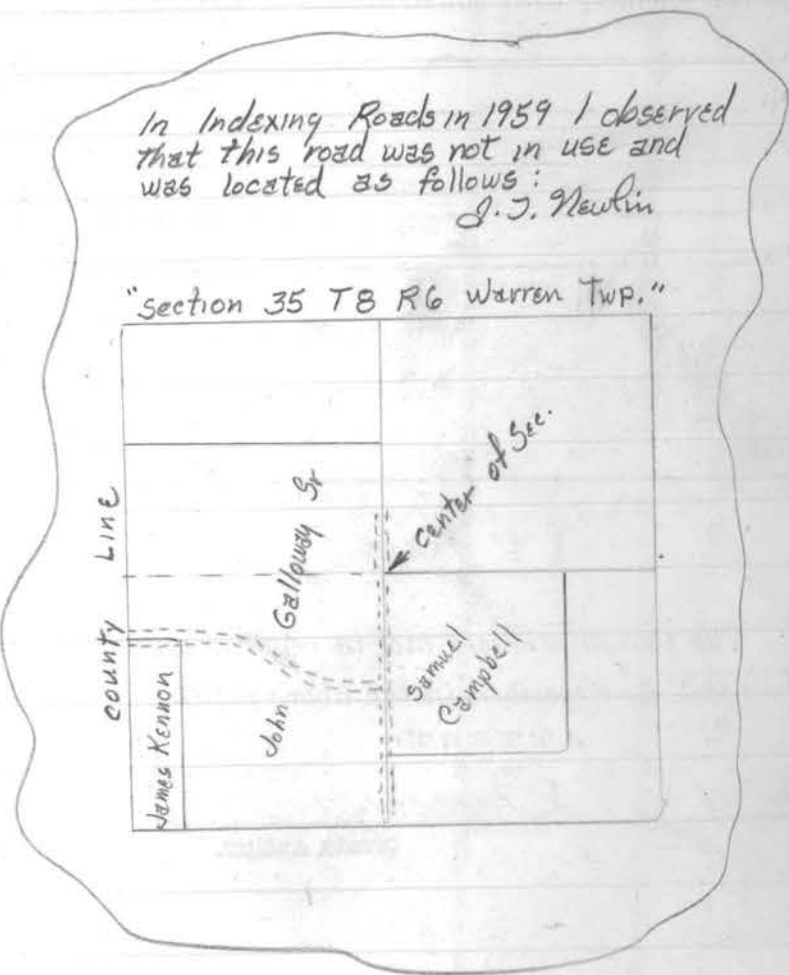 In Indexing Roads in 1959 I observed
that this road was not in use and
was located as follows:
J.T. Newlin
"Section 35 T8 R6 Warren Twp."
County Line
John Galloway Sr
Center of Sec.
James Kennon
Samuel
Campbell